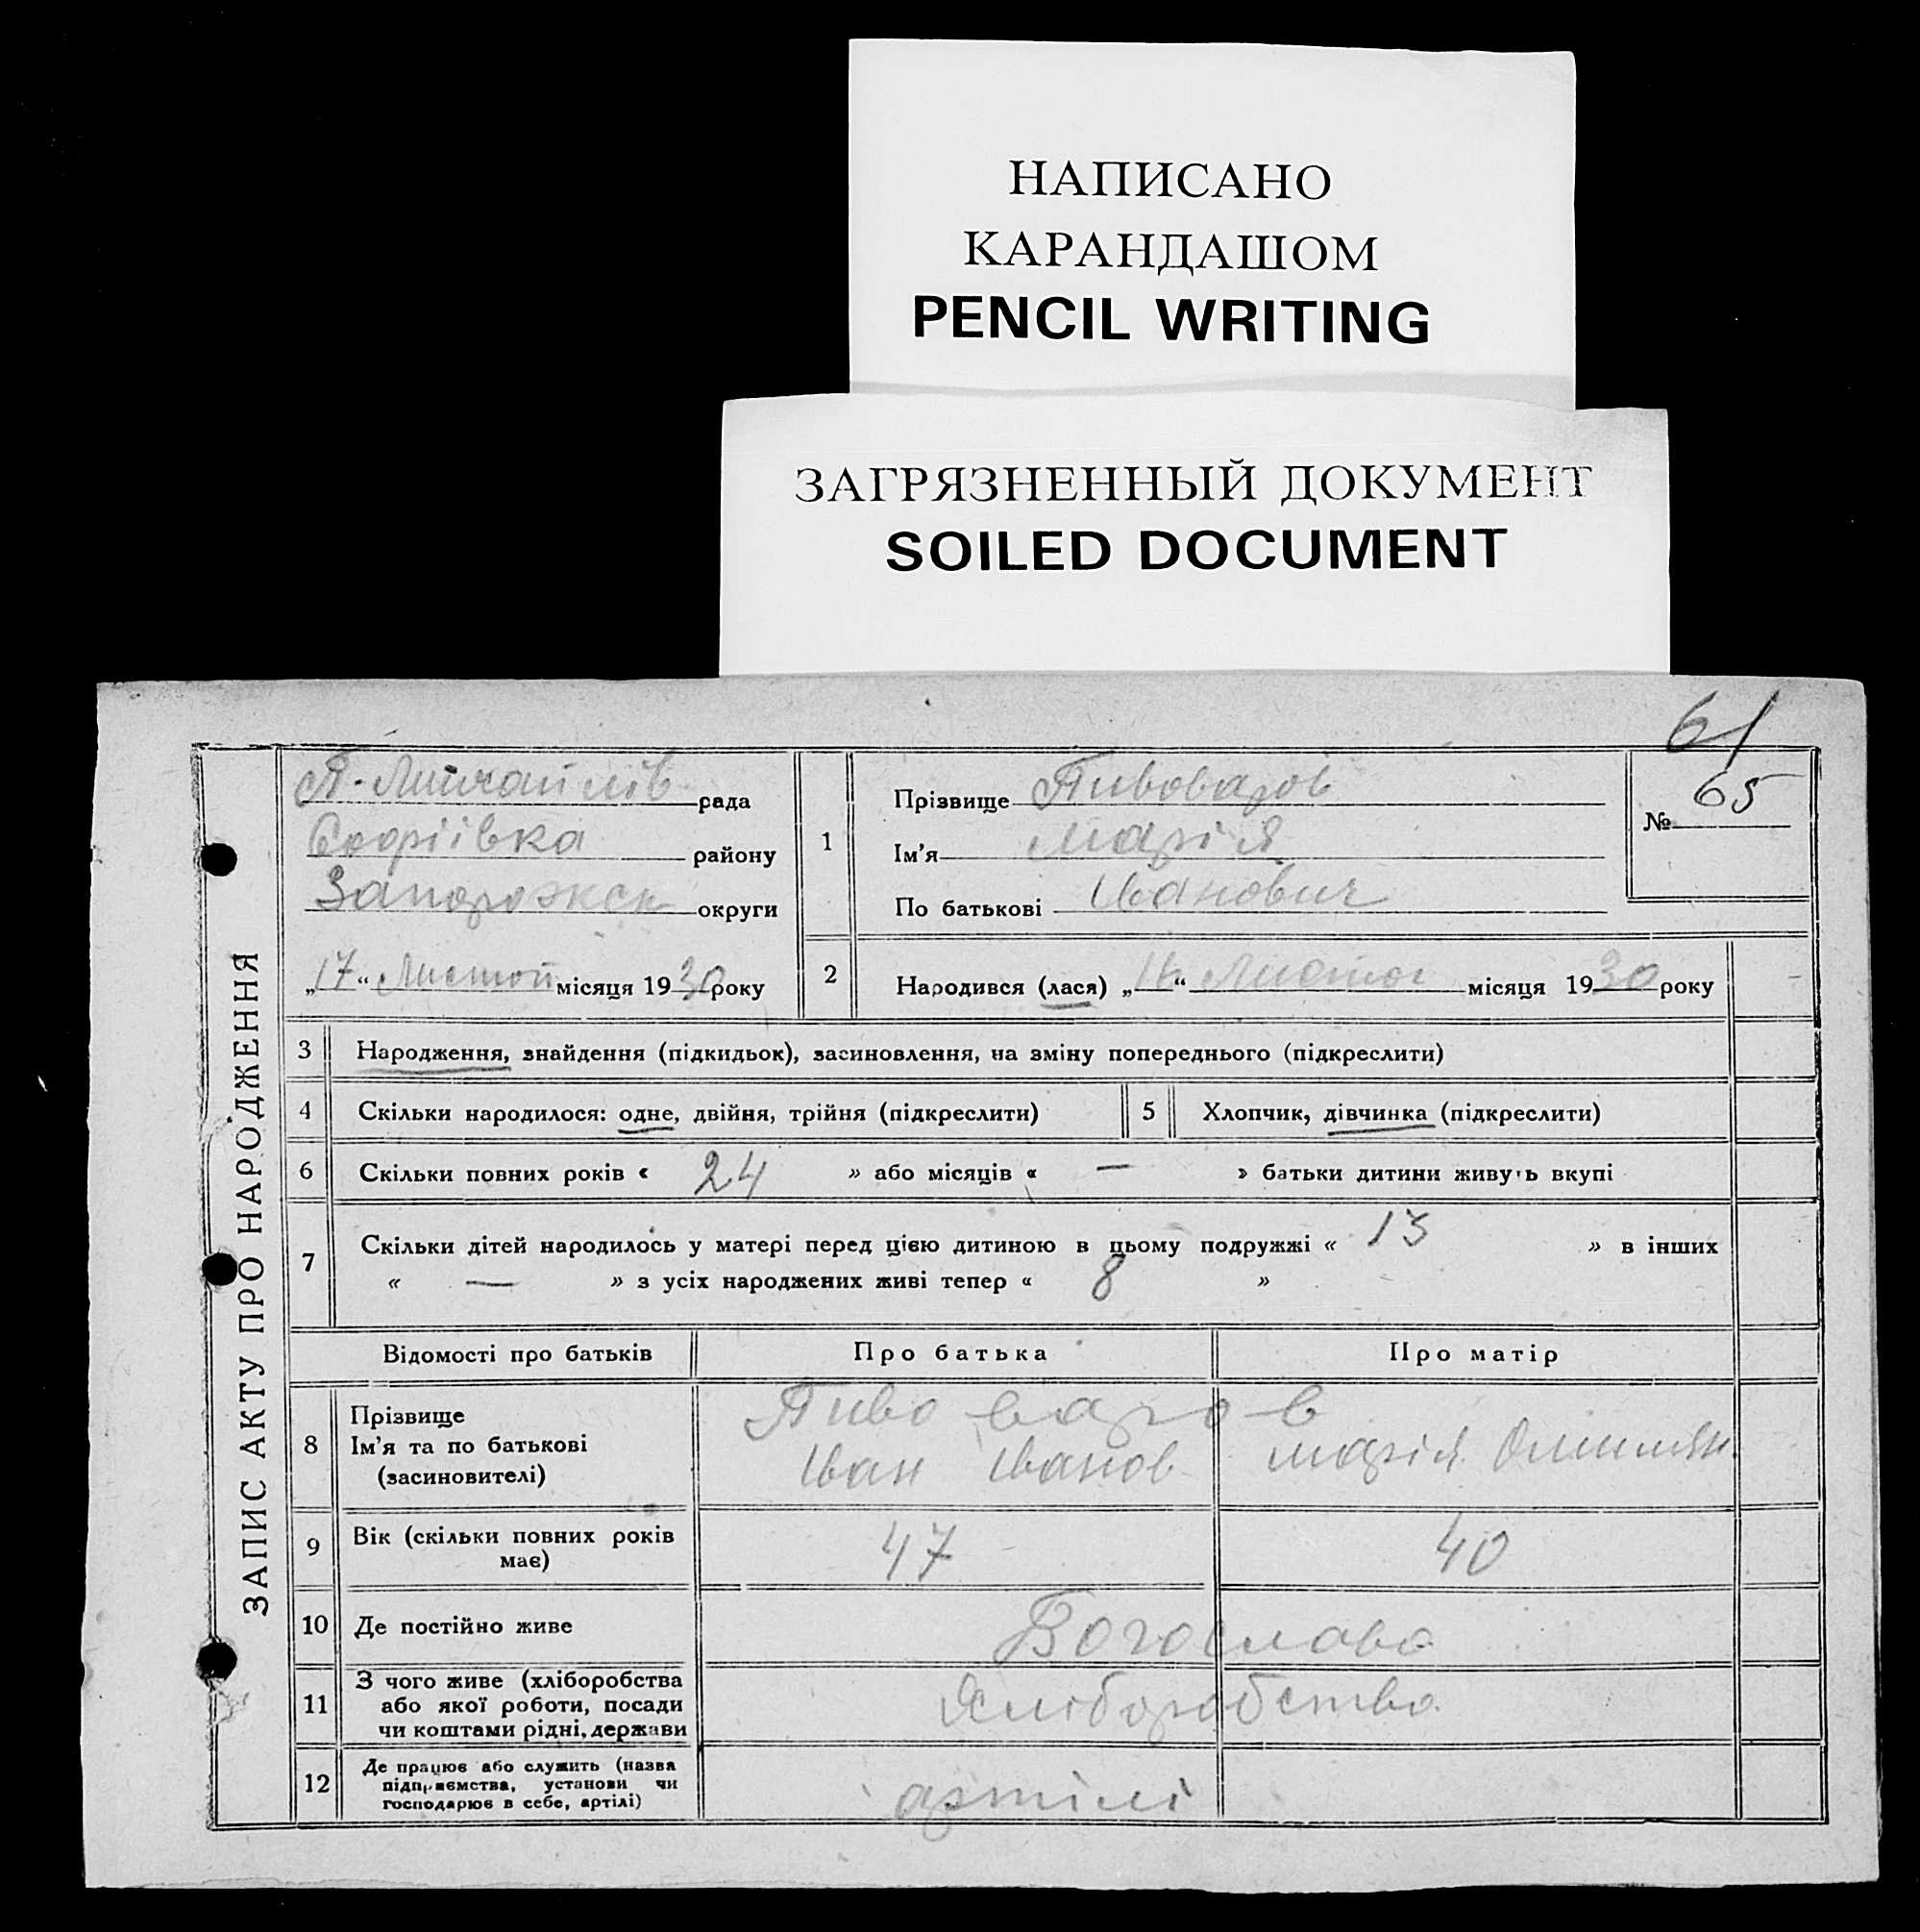 НАПИСАНО
КАРАНДАШОМ
PENCIL WRITING
ЗАГРЯЗНЕННЫЙ ДОКУМЕНТ
SOILED DOCUMENT
61
ЗАПИС АКТУ ПРО НАРОДЖЕННЯ
Я.-Михайлів рада
Софіївка району
Запорожск округи
„17“ місяця 1930 року
1
Прізвище Пивоваров
Ім'я Марія
По батькові Іванович
№ 65
2
Народився (лася) „ “ місяця 1930 року
3 Народження, знайдення (підкидьок), засиновлення, на зміну попереднього (підкреслити)
4 Скільки народилося: одне, двійня, трійня (підкреслити)
5 Хлопчик, дівчинка (підкреслити)
6 Скільки повних років « 24 » або місяців « — » батьки дитини живуть вкупі
7 Скільки дітей народилось у матері перед цією дитиною в цьому подружжі « 13 » в інших
« — » з усіх народжених живі тепер « 8 »
Відомості про батьків Про батька Про матір
8 Прізвище Ім'я та по батькові (засиновителі)
Пивоваров
Іван Іванов Марія
9 Вік (скільки повних років має) 47 40
10 Де постійно живе Богослово
11 З чого живе (хліборобства або якої роботи, посади чи коштами рідні, держави Хліборобство
12 Де працює або служить (назва підприємства, установи чи господарює в себе, артілі) артілі